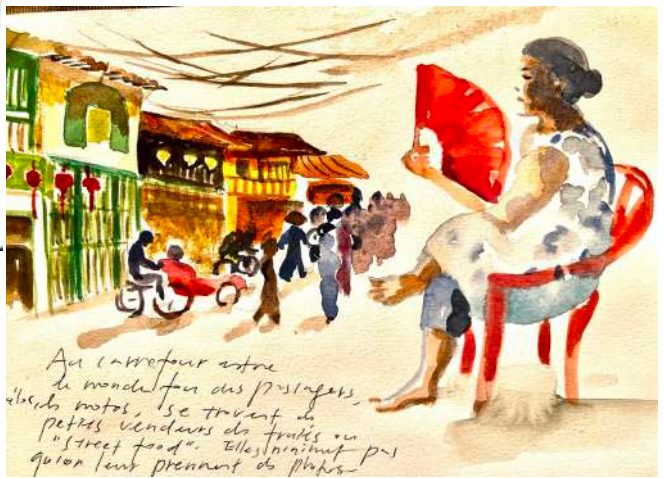 Au carrefour entre
le monde fou des passagers,
des motos, se trouvent de
petits vendeurs de fruits ou
"street food". Elles n'aiment pas
qu'on leur prennent des photos